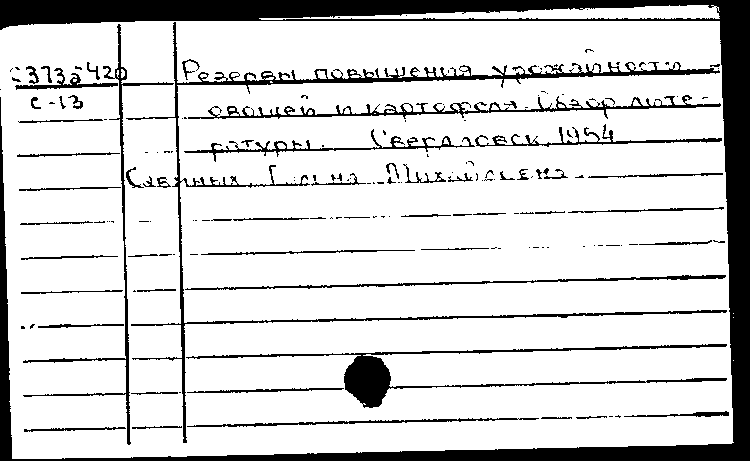 С3735420 Резервы повышения урожайности
С-13 овощей и картофеля. Обзор лите-
ратуры. Свердловск, 1954
Михайловна.